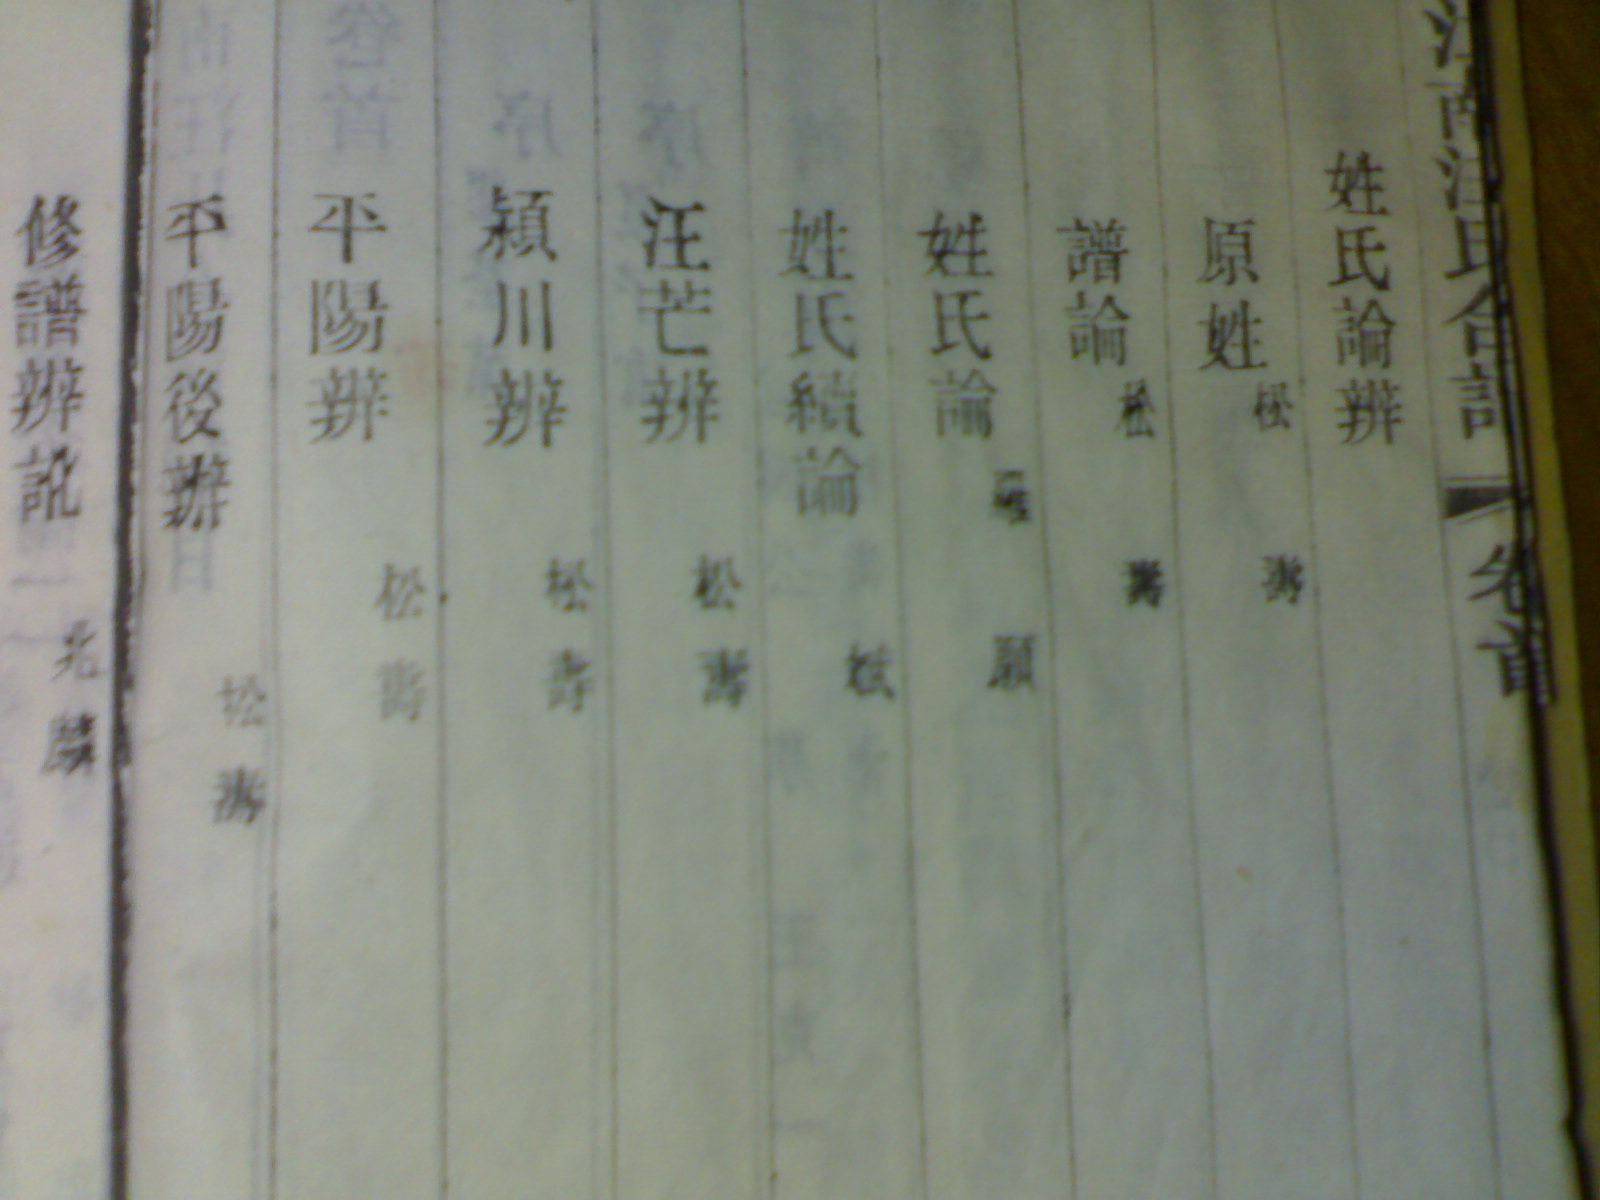 江南汪氏合譜 卷首
姓氏論辨
原姓 松濤
譜論 松濤
姓氏論 願
姓氏續論
汪芒辨 松濤
潁川辨 松濤
平陽辨 松濤
平陽後辨 松濤
修譜辨訛 兆麟